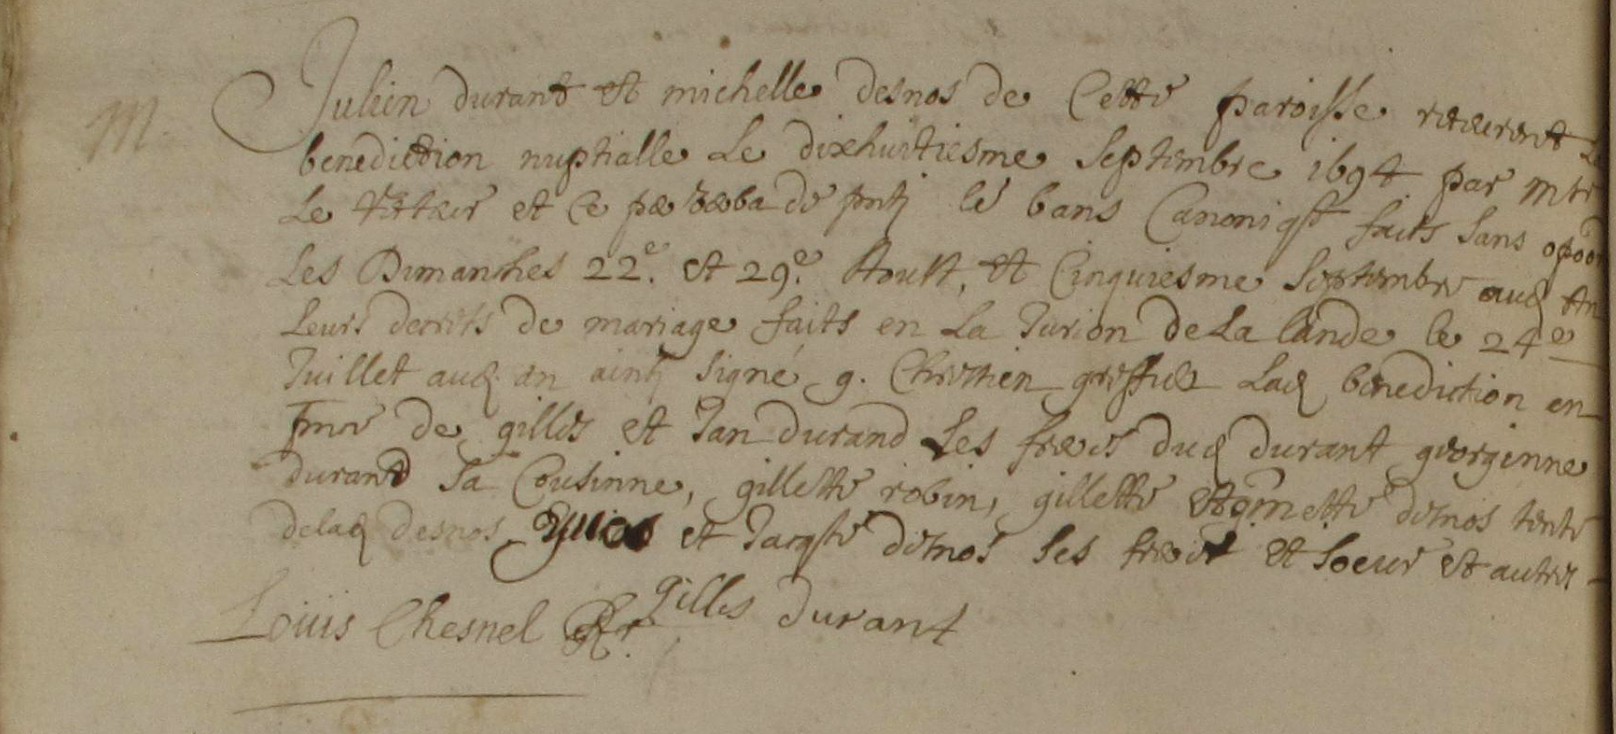 M.
Julien durant et michelle desnos de Cette paroisse receurent La
benediction nuptialle Le dixhuitiesme Septembre 1694 par Mre
Le et Ce de les bans Canoniqs faits Sans
Les Dimanches 22e. et 29e. Aoust, et Cinquiesme Septembre aud An
Leurs decrets de mariage faits en La Jurion de La lande le 24e
Juillet aud. an ainsy Signé g. Chrestien greffier Lad benediction en
pnce de gilles et Jan durand Les freres dud durant georginne
durand Sa Cousinne, gillette robin, gillette et desnos tente
delad desnos, et Jacqste desnos Ses freres et Soeur et autres
Louis Chesnel gilles durant